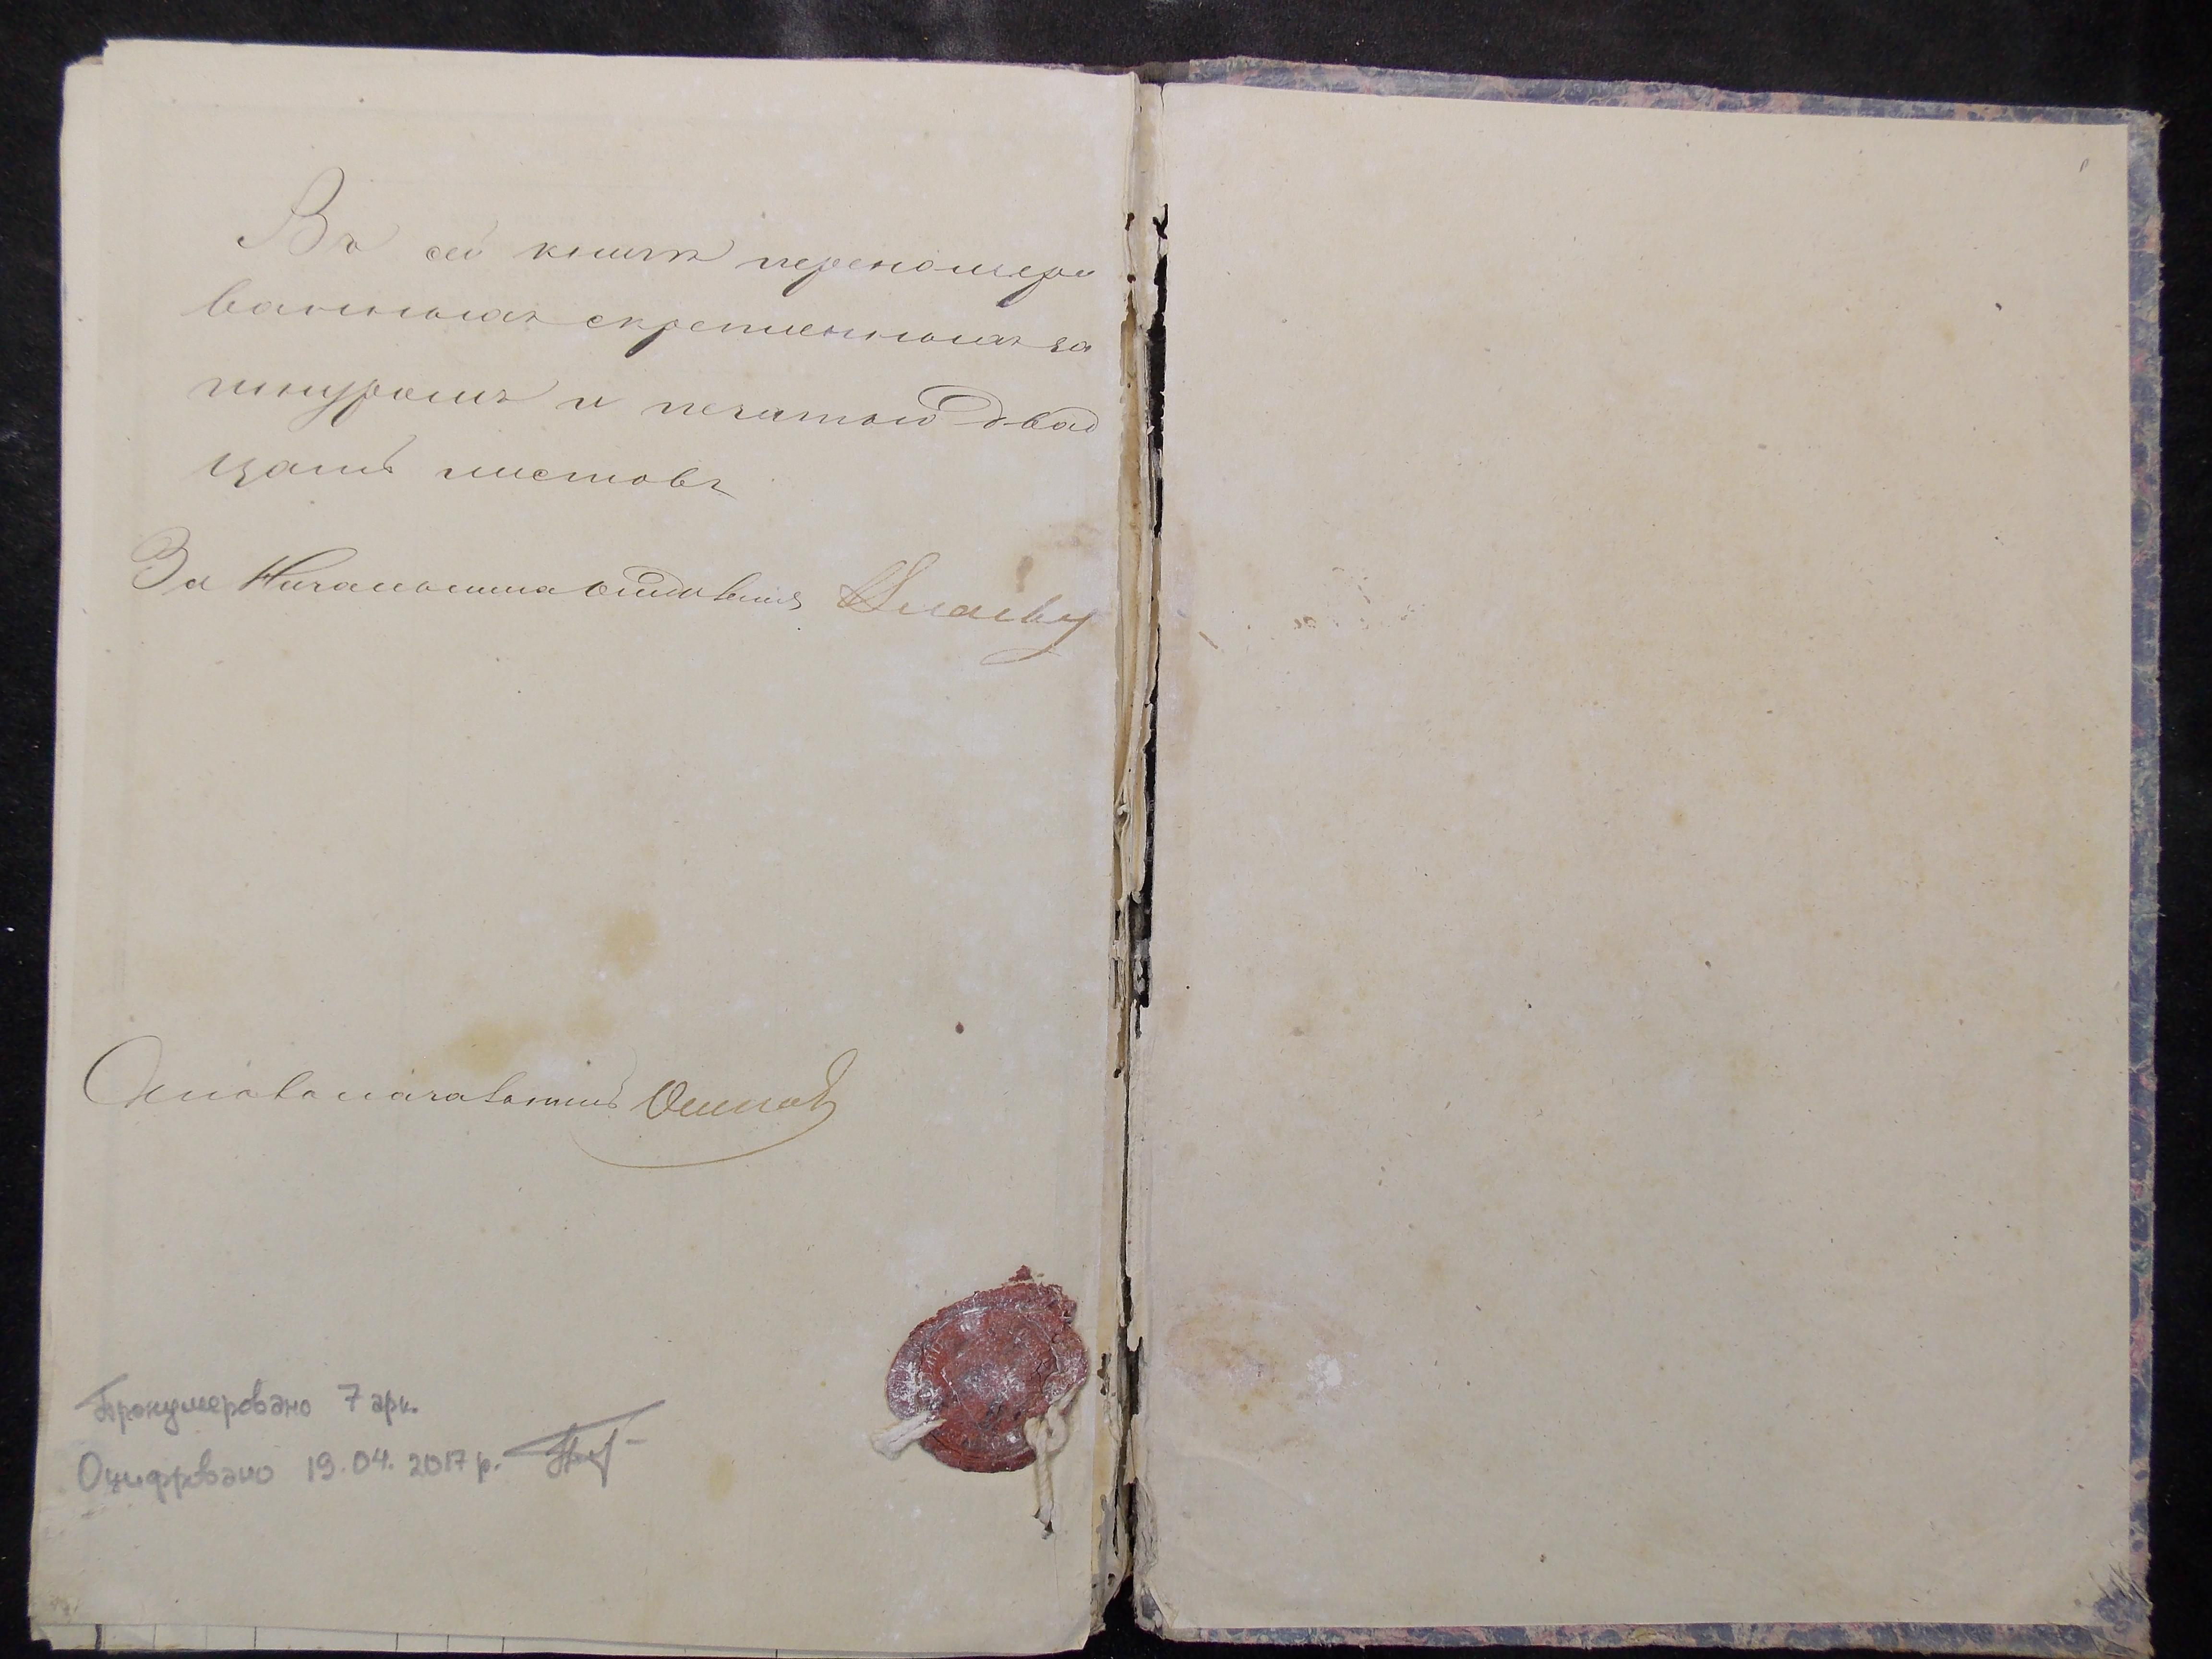 Въ сей книгѣ перенумеро
ванныхъ скрепленныхъ за
шнуромъ и печатью двад
цать листовъ
За Начальника отделенія
Столоначальникъ Осипов
Пронумеровано 7 арк.
Оцифровано 19.04.2017 р.